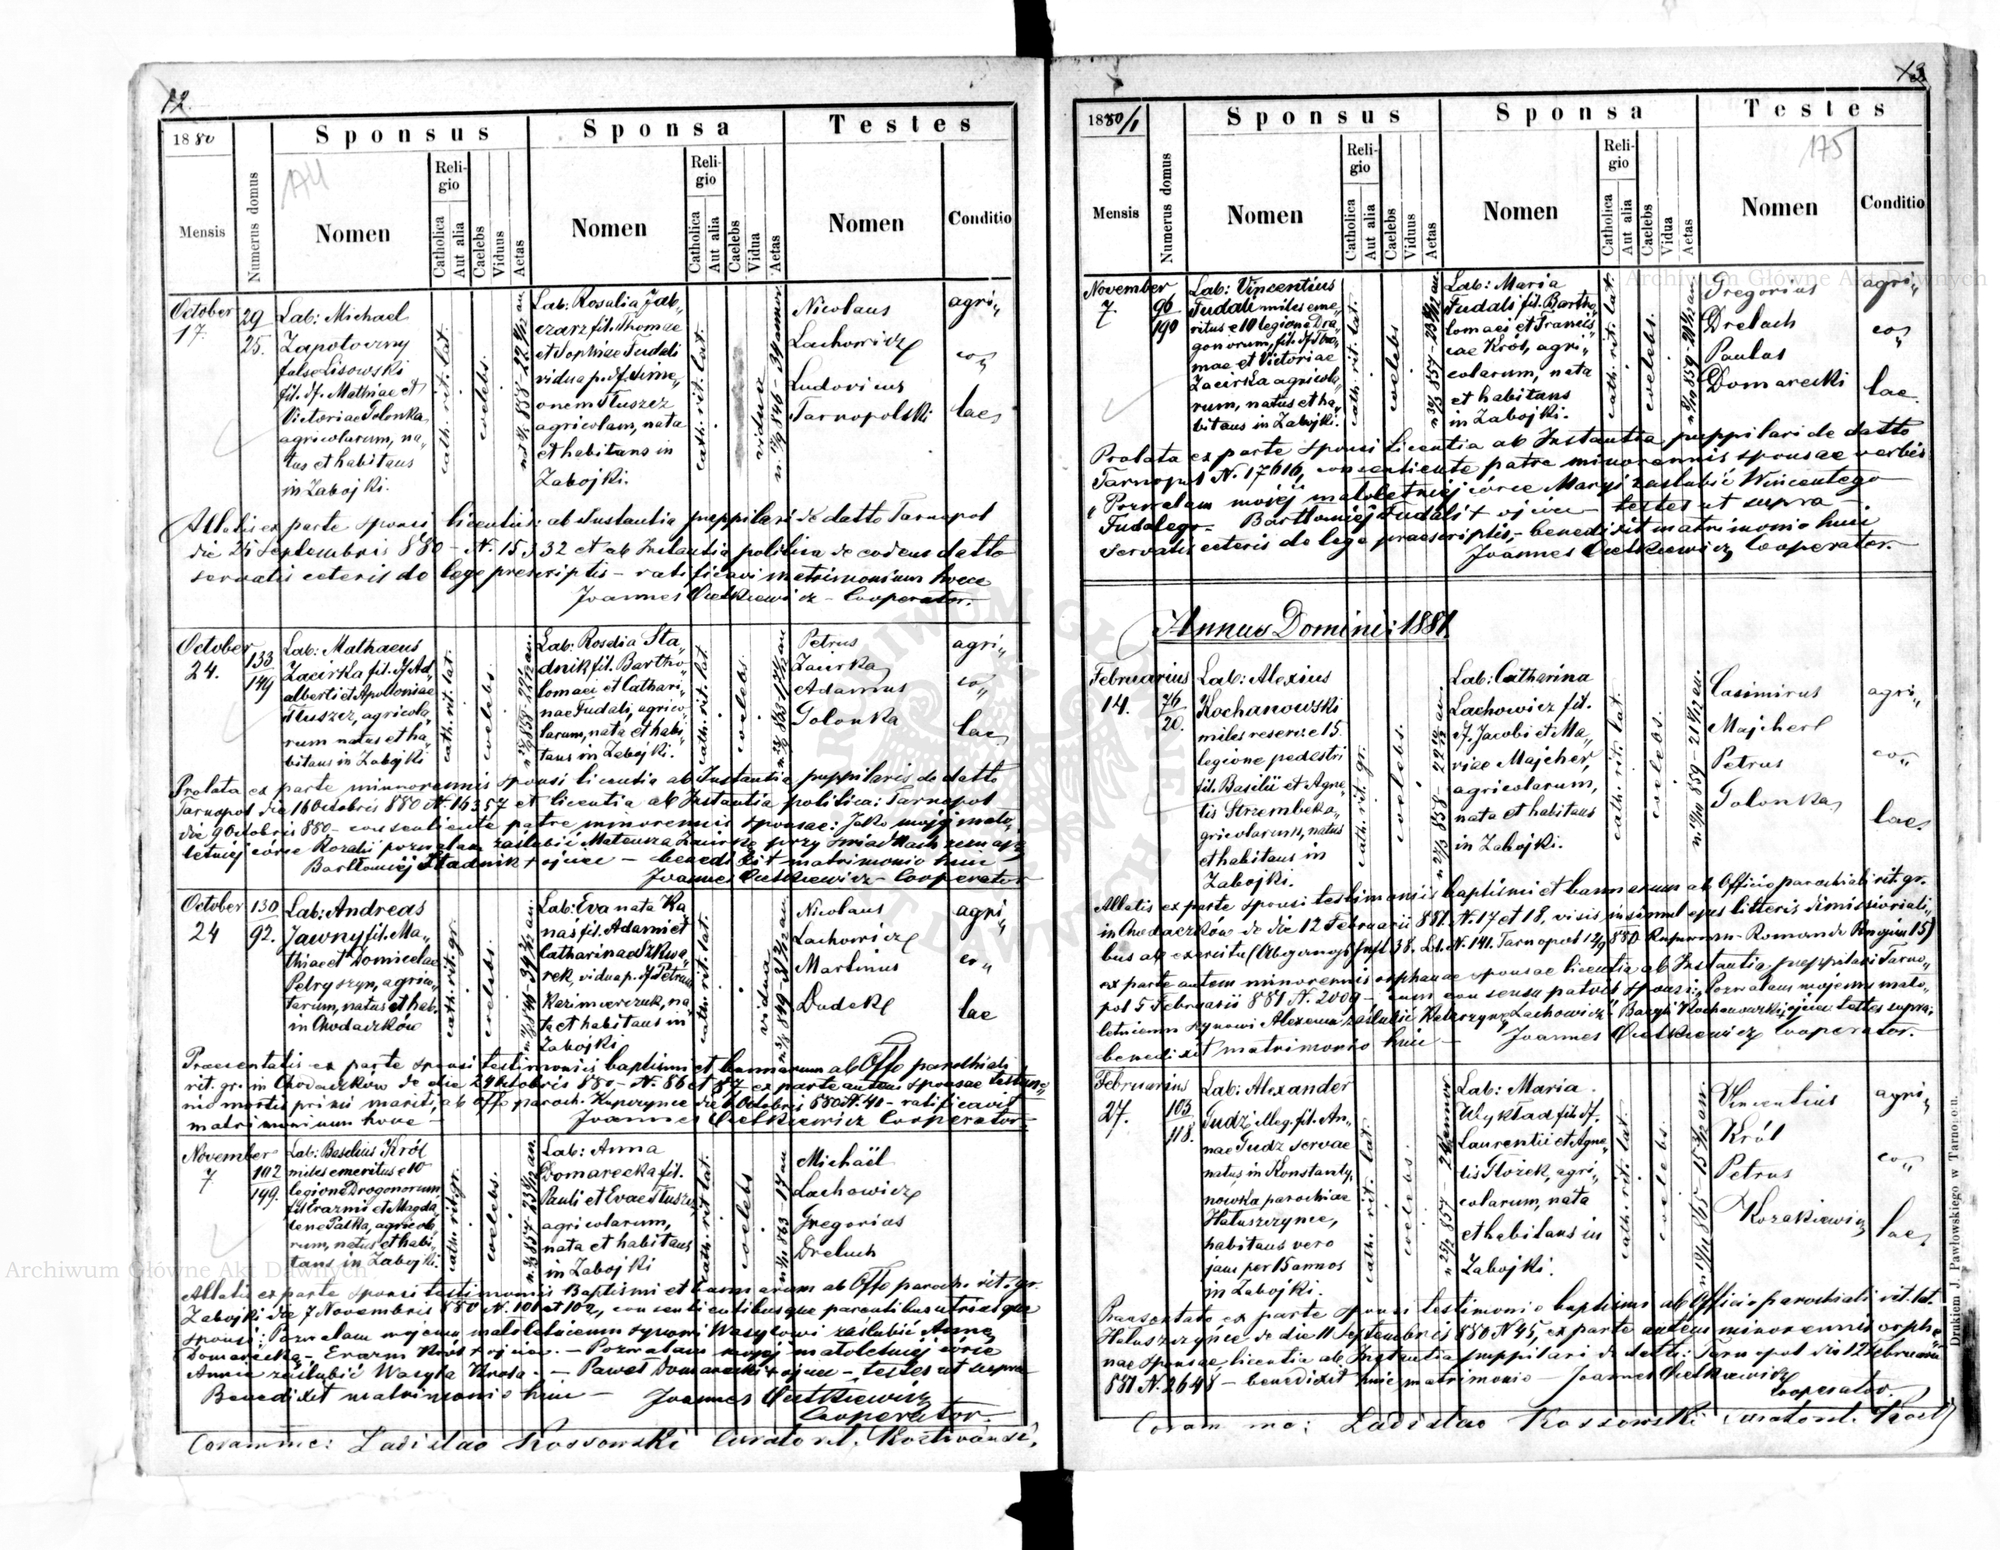 12
1880
Sponsus
Sponsa
Testes
174
Mensis
Numerus domus
Nomen
Religio
Catholica
Aut alia
Caelebs
Viduus
Aetas
Nomen
Religio
Catholica
Aut alia
Caelebs
Vidua
Aetas
Nomen
Conditio
October
17.
29
25.
Lab: Michael
Zapotoczny
false Lisowski
fil. Mathiae et
Victoriae Golonka
agricolarum, na„
tus et habitans
in Zabojki.
cath. rit. lat.
coelebs.
Lab: Rosalia
fil. Thomae
et Sophiae Fudali
vidua p. df. Sime„
onem Tłuszcz
agricolam, nata
et habitans in
Zabojki.
cath. rit. lat.
vidua
Nicolaus
Lachowicz
Ludovicus
Tarnopolski
agri„
co„
lae
Allatis ex parte sponsi licentiis: ab Instantia puppilari de datto Tarnopol
die 25 Septembris 880 – N. 15532 et ab Instantia politica de eodem datto
servatis ceteris de lege prescriptis – ratificavi matrimonium hocce
Joannes Cietkiewicz – Cooperator.
October
24.
133
149
Lab: Mathaeus
Zacirka fil. df. Ad„
alberti et Apolloniae
Tłuszcz, agricola
rum natus et ha„
bitans in Zabojki
cath. rit. lat.
coelebs.
Lab: Rosalia Sta„
dnik fil. Bartho„
lomaei et Cathari„
nae Fudali, agrico„
larum, nata et habi„
tans in Zabojki.
cath. rit. lat.
coelebs.
Petrus
Zacirka
Adamus
Golonka
agri„
co„
lae
Prolata ex parte minorennis sponsi licentia ab Instantia puppilaris de datto
Tarnopol die 16 Octobris 880 N. 16257 et licentia ab Instantia politica: Tarnopol
die 9 Octobris 880 – consentiente patre minorennis sponsae: Jako mojej mało„
letniej córce Rozalii pozwalam zaślubić Mateusza Zacirkę przy świadkach
Bartłomiej Stadnik + ojciec – benedixit matrimonio huic
Joannes Cietkiewicz – Cooperator
October
24
130
92.
Lab: Andreas
Jawny fil. Ma„
thiae et Domicelae
Petryszyn, agrico„
larum, natus et hab.
in Chodaczków
cath. rit. gr.
coelebs.
Lab: Eva nata Ka
naś fil. Adami et
Catharinae Skwa„
rek, vidua p. df. Petrum
Kazimierczuk, na„
ta et habitans in
Zabojki
cath. rit. lat.
vidua
Nicolaus
Lachowicz
Martinus
Dudek
agri„
co„
lae
Praesentatis ex parte sponsi testimoniis baptismi et bannorum ab Offo parochiali
rit. gr. in Chodaczków de die 24 Octobris 880 – N. 86 et 87 – ex parte autem sponsae testimo„
nio mortis primi mariti, ab Offo paroch. Kupczynce die Octobris 880 N. 40 – ratificavi
matrimonium hocce –
Joannes Cietkiewicz Cooperator
November
7
102
149.
Lab: Basilius Król
miles emeritus e 10
legione Dragonorum
fil. Erazmi et Magda
lenae Pałka, agricola
rum, natus et habi„
tans in Zabojki.
cath. rit. gr.
coelebs.
Lab: Anna
Domarecka fil.
Pauli et Evae Tłuszcz,
agricolarum,
nata et habitans
in Zabojki
cath. rit. lat.
coelebs
Michaël
Lachowicz
Gregorius
Drelich
Allatis ex parte sponsi testimoniis Baptismi et bannorum ab Offo paroch. rit. gr.
Zabojki die 7 Novembris 880 N. 101 et 102, consentientibusque parentibus utriusque
sponsi: Pozwalam mojemu małoletniemu synowi Wasylowi zaślubić Annę
Domarecką – Erazm Król + ojciec. – Pozwalam mojej małoletniej córce
Annie zaślubić Wasyla Króla. – Paweł Domarecki + ojciec – testes ut supra
Benedixit matrimonio huic – Joannes Cietkiewicz
Cooperator.
Coram me: Ladislao Kossowski Curato rit.
13
1880/1
Sponsus
Sponsa
Testes
175
Mensis
Numerus domus
Nomen
Religio
Catholica
Aut alia
Caelebs
Viduus
Aetas
Nomen
Religio
Catholica
Aut alia
Caelebs
Vidua
Aetas
Nomen
Conditio
November
7.
96
190
Lab: Vincentius
Fudali miles eme„
ritus e 10 legione Dra„
gonorum, fil. df. Tho„
mae et Victoriae
Zacirka agricola„
rum, natus et ha„
bitans in Zabojki.
cath. rit. lat.
coelebs
Lab: Maria
Fudali fil. Bartho„
lomaei et Francis„
cae Król, agri„
colarum, nata
et habitans
in Zabojki.
cath. rit. lat.
coelebs.
Gregorius
Drelich
Paulus
Domarecki
agri„
co„
lae.
Prolata ex parte sponsi licentia ab Instantia puppilari de datto
Tarnopol N. 17616, consentiente patre minorennis sponsae verbis
Pozwalam mojej małoletniej córce Maryi zaślubić Wincentego
Fudalego. Bartłomiej Fudali + ojciec – testes ut supra –
Servatis ceteris de lege praescriptis – benedixit matrimonio huic
Joannes Cietkiewicz Cooperator.
Annus Domini: 1881.
Februarius
14.
76
20.
Lab: Alexius
Kochanowski
miles reserv. e 15.
legione pedestri
fil. Basilii et Agne„
tis Strzembeka,
gricolarum, natus
et habitans in
Zabojki.
cath. rit. gr.
coelebs.
Lab: Catharina
Lachowicz fil.
df. Jacobi et Ma„
riae Majcher,
agricolarum,
nata et habitans
in Zabojki.
cath. rit. lat.
coelebs.
Casimirus
Majcher
Petrus
Golonka
agri„
co„
lae.
Allatis ex parte sponsi testimoniis baptismi et bannorum ab Officio parochiali rit. gr.
in Chodaczków de die 12 Februarii 881. N. 17 et 18, visis insimul ejus litteris dimissoriali„
bus ab exercitu
ex parte autem minorennis orphanae sponsae licentia ab Instantia puppilari Tarno„
pol 5 Februarii 881 N. 2009 – cum consensu patris sponsi: Pozwalam mojemu mało„
letniemu synowi Alexemu zaślubić Katarzynę Lachowicz Bazyli Kochanowski, ojciec testes supra:
benedixit matrimonio huic – Joannes Cietkiewicz Cooperator.
Februarius
27.
103
118.
Lab: Alexander
Gudz illeg. fil. An„
nae Gudz servae
natus in Konstanty„
nowka parochiae
Hałuszczynce,
habitans vero
jam per 15 annos
in Zabojki.
cath. rit. lat.
coelebs.
Lab: Maria
Wykład fil. df.
Laurentii et Agne„
tis Stożek, agri„
colarum, nata
et habitans in
Zabojki.
cath. rit. lat.
coelebs.
Vincentius
Król
Petrus
Kozakiewicz
agri„
co„
lae
Praesentato ex parte sponsi testimonio baptismi ab Officio parochiali rit. lat.
Hałuszczynce de die 11 Septembris 880 N 45, ex parte autem minorennis orpha„
nae sponsae, licentia ab Instantia puppilari de datto: Tarnopol die 12 Februarii
881 N. 2648 – benedixit huic matrimonio – Joannes Cietkiewicz
Cooperator.
Coram me: Ladislao Kossowski Curato rit.
Drukiem J. Pawłowskiego w Tarnopolu.
Archiwum Główne Akt Dawnych
Archiwum Główne Akt Dawnych
ARCHIWUM GŁÓWNE AKT DAWNYCH